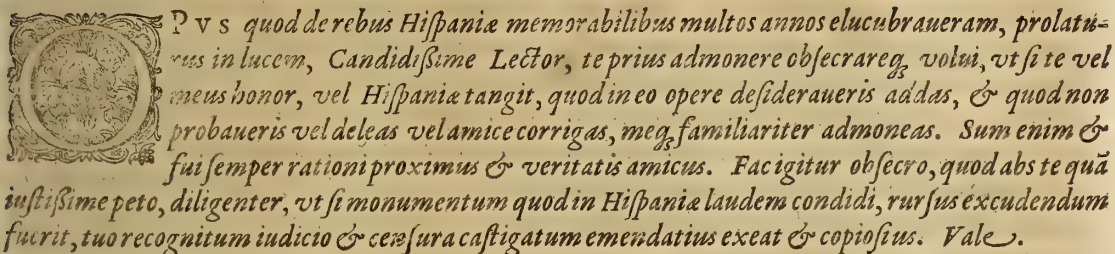 OPVS quod de rebus Hiſpaniæ memorabilibus multos annos elucubraueram, prolatu-
rus in lucem, Candidiſsime Lector, te prius admonere obſecrareq; volui, vt ſi te vel
meus honor, vel Hiſpaniæ tangit, quod in eo opere deſideraueris addas, & quod non
probaueris vel deleas vel amice corrigas, meq; familiariter admoneas. Sum enim &
fui ſemper rationi proximus & veritatis amicus. Fac igitur obſecro, quod abs te quã
iuſtiſsime peto, diligenter, vt ſi monumentum quod in Hiſpaniæ laudem condidi, rurſus excudendum
fuerit, tuo recognitum iudicio & cenſura caſtigatum emendatius exeat & copioſius. Vale.